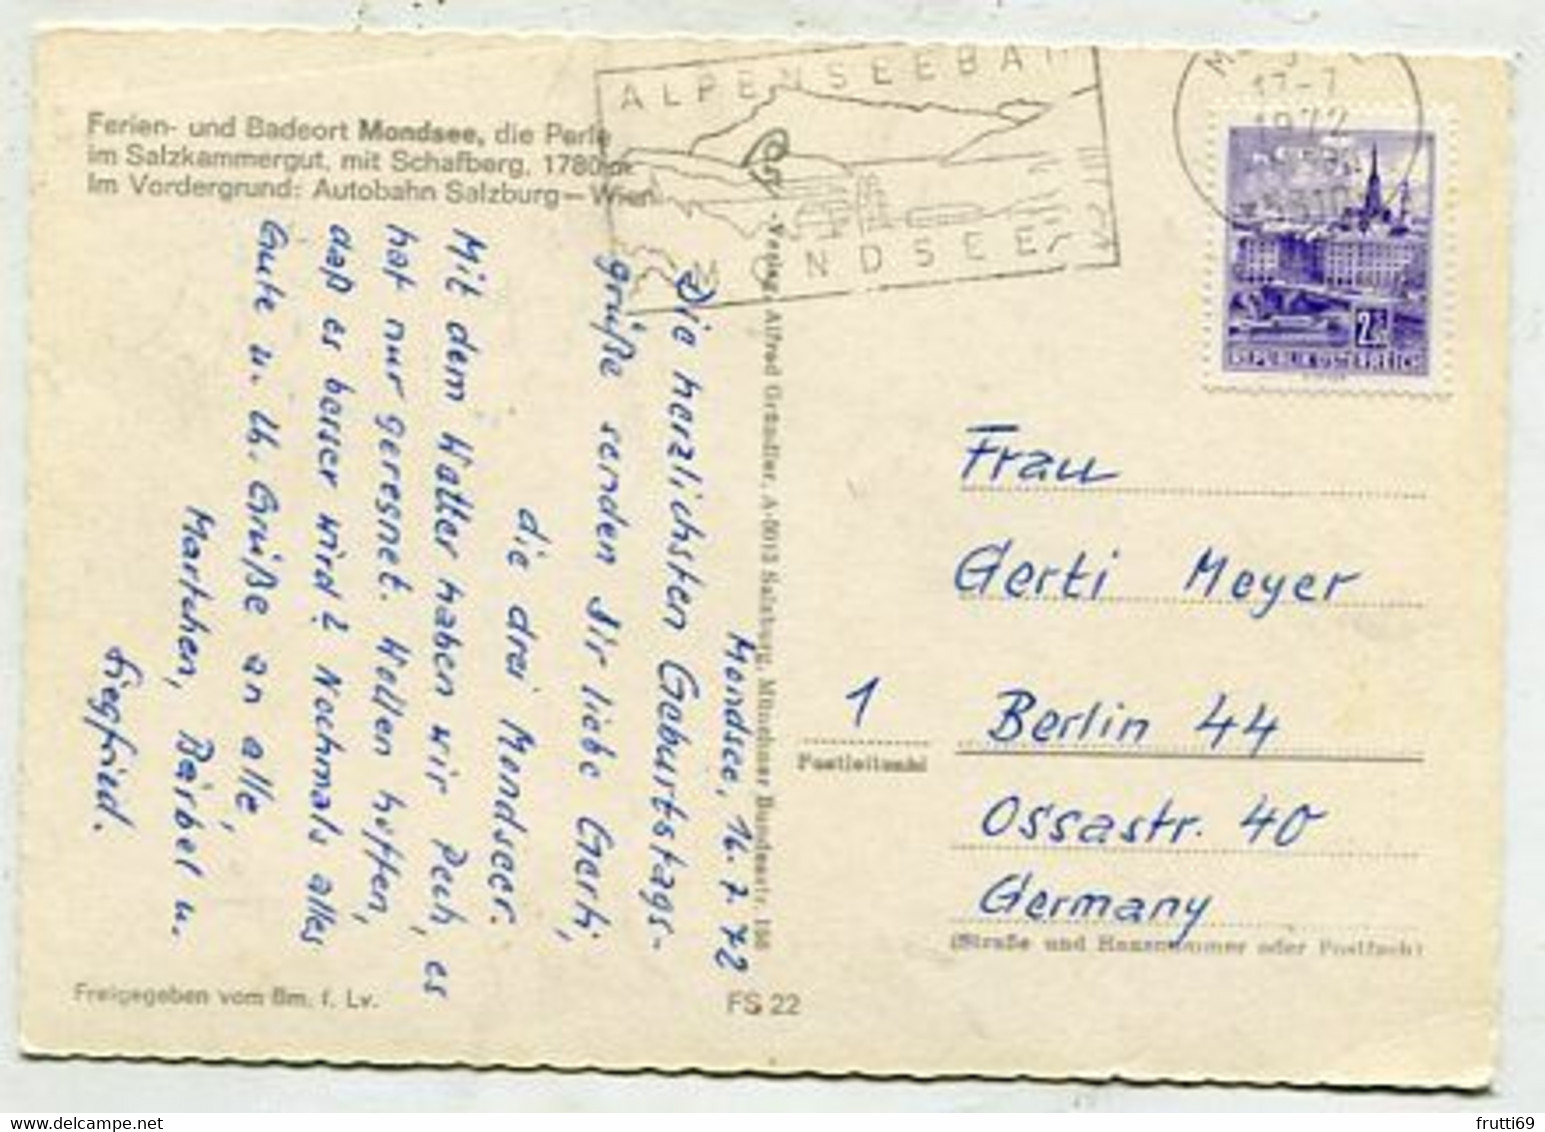 Ferien- und Badeort Mondsee, die Perle
im Salzkammergut, mit Schafberg, 1780 m
Im Vordergrund: Autobahn Salzburg–Wien
Mondsee, 16.7.72
Die herzlichsten Geburtstags-
grüße senden Dir liebe Gerti,
die drei Mondseer.
Mit dem Wetter haben wir Pech, es
hat nur geregnet. Wollen hoffen,
daß es besser wird! Nochmals alles
Gute u. lb. Grüße an alle,
Martchen, Bärbel u.
Siegfried.
Freigegeben vom Bm. f. Lv.
FS 22
-Verlag, Alfred Gründler, A-5013 Salzburg, Münchner Bundesstr. 156
ALPENSEEBAD
MONDSEE
17-7
1972
5310
2.50
REPUBLIK ÖSTERREICH
Frau
Gerti Meyer
1 Berlin 44
Postleitzahl
Ossastr. 40
Germany
(Straße und Hausnummer oder Postfach)
frutti69